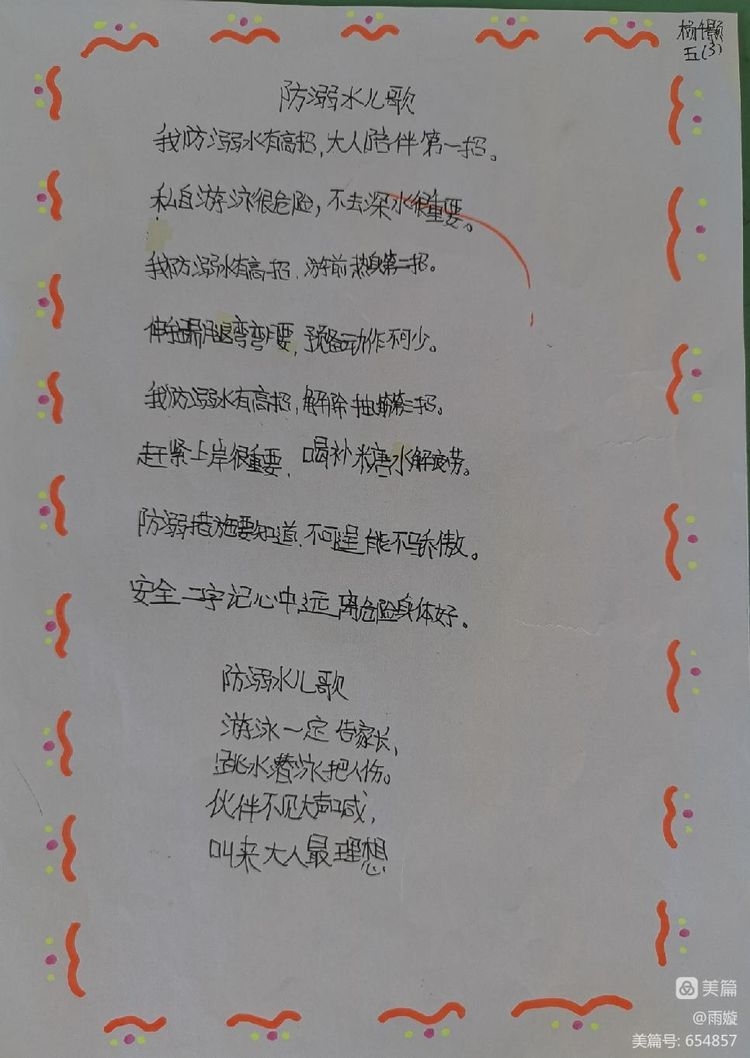 杨千颢
五(3)
防溺水儿歌
我防溺水有高招,大人陪伴第一招。
私自游泳很危险,不去深水很重要。
我防溺水有高招,游前热身第二招。
伸手踢腿弯弯腰,预备动作不可少。
我防溺水有高招,解除抽筋第三招。
赶紧上岸很重要,喝补糖水解疲劳。
防溺措施要知道,不可逞能不骄傲。
安全二字记心中,远离危险身体好。
防溺水儿歌
游泳一定告家长,
跳水潜泳把人伤。
伙伴不见大声喊,
叫来大人最理想
美篇
@雨嫙
美篇号: 654857